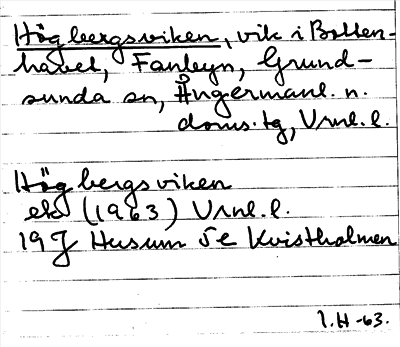 Högbergsviken, vik i Botten-
havet, Fanbyn, Grund-
sunda sn, Ångermanl. n.
doms. tg, Vrnl. l.
Högbergsviken
ek (1963) Vrnl. l.
19J Husum SE Kvistholmen
I.H -63.